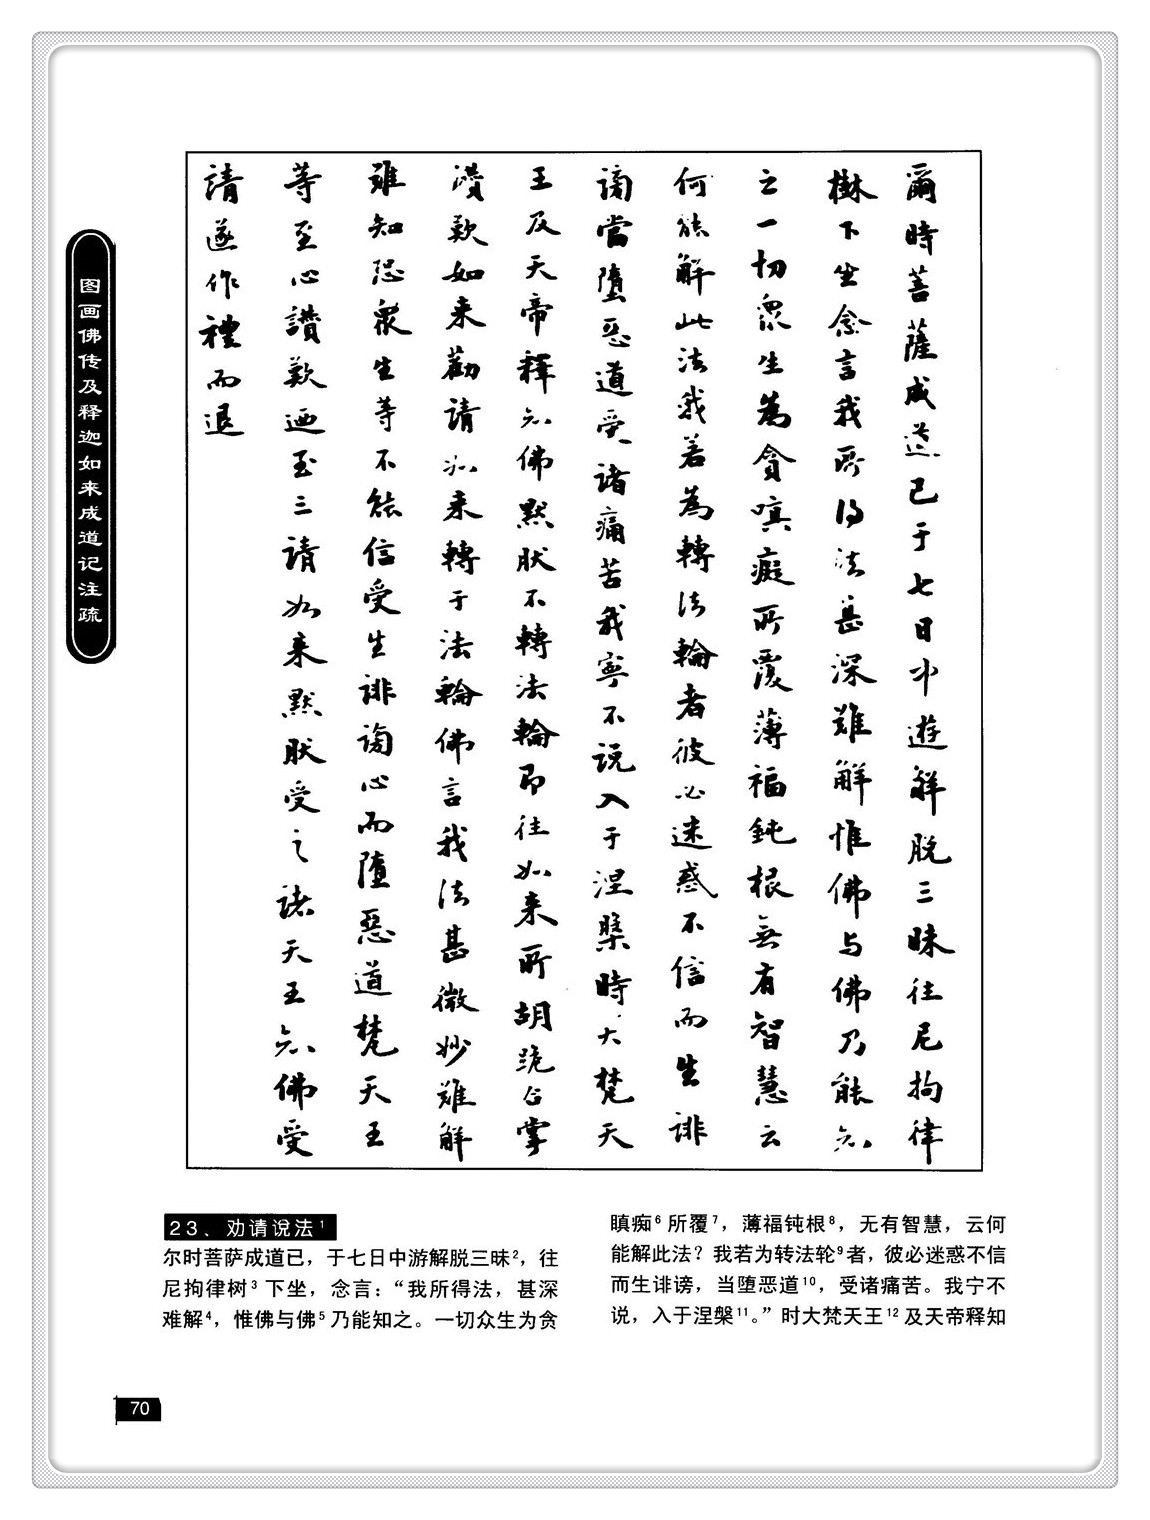 图画佛传及释迦如来成道记注疏
爾時菩薩成道已于七日中遊解脱三昧往尼拘律
樹下坐念言我所得法甚深難解惟佛与佛乃能知
之一切衆生為貪嗔癡所覆薄福鈍根無有智慧云
何能解此法我若為轉法輪者彼必迷惑不信而生誹
謗當墮惡道受諸痛苦我寧不说入于涅槃時大梵天
王及天帝釋知佛默肰不轉法輪即往如来所胡跪合掌
讚歎如来勸請如来轉于法輪佛言我法甚微妙難解
難知恐衆生等不能信受生誹謗心而墮惡道梵天王
等至心讚歎迺至三請如来默肰受之諸天王知佛受
請遂作禮而退
23、劝请说法1
尔时菩萨成道已，于七日中游解脱三昧2，往
尼拘律树3下坐，念言：“我所得法，甚深
难解4，惟佛与佛5乃能知之。一切众生为贪
瞋痴6所覆7，薄福钝根8，无有智慧，云何
能解此法？我若为转法轮9者，彼必迷惑不信
而生诽谤，当堕恶道10，受诸痛苦。我宁不
说，入于涅槃11。”时大梵天王12及天帝释知
70